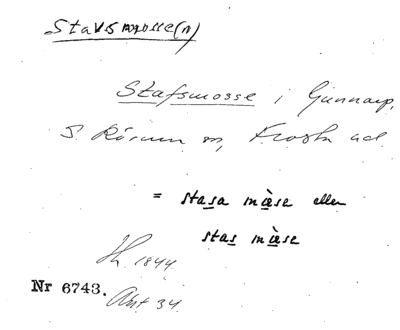 Stavsmosse(n)
Stafsmosse i Gunnarp,
S. Rörum sn, Frosta hd.
= stasa mæ̀se eller
stas mæ̀se
1844.
Nr 6743. Ant 34